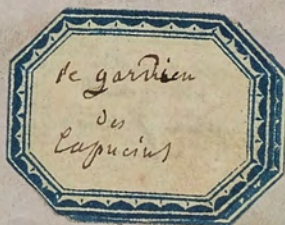 le gardien
des
Capucins